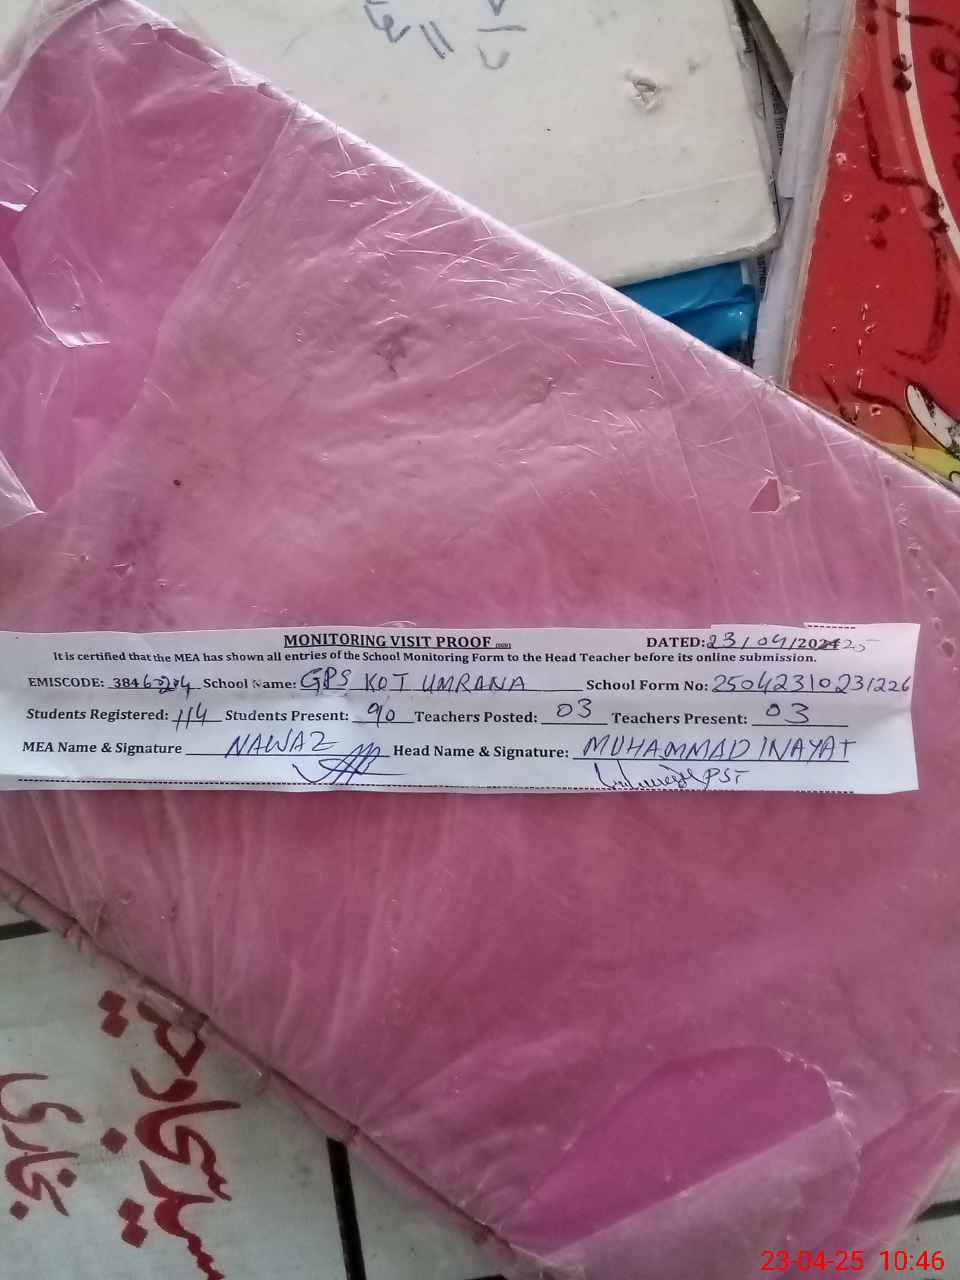 MONITORING VISIT PROOF
DATED: 23/04/2025
It is certified that the MEA has shown all entries of the School Monitoring Form to the Head Teacher before its online submission.
EMISCODE: 384 School Name: GPS KOT UMRANA School Form No: 25042310231226
Students Registered: 114 Students Present: 90 Teachers Posted: 03 Teachers Present: 03
MEA Name & Signature NAWAZ Head Name & Signature: MUHAMMAD INAYAT
PST
23-04-25 10:46